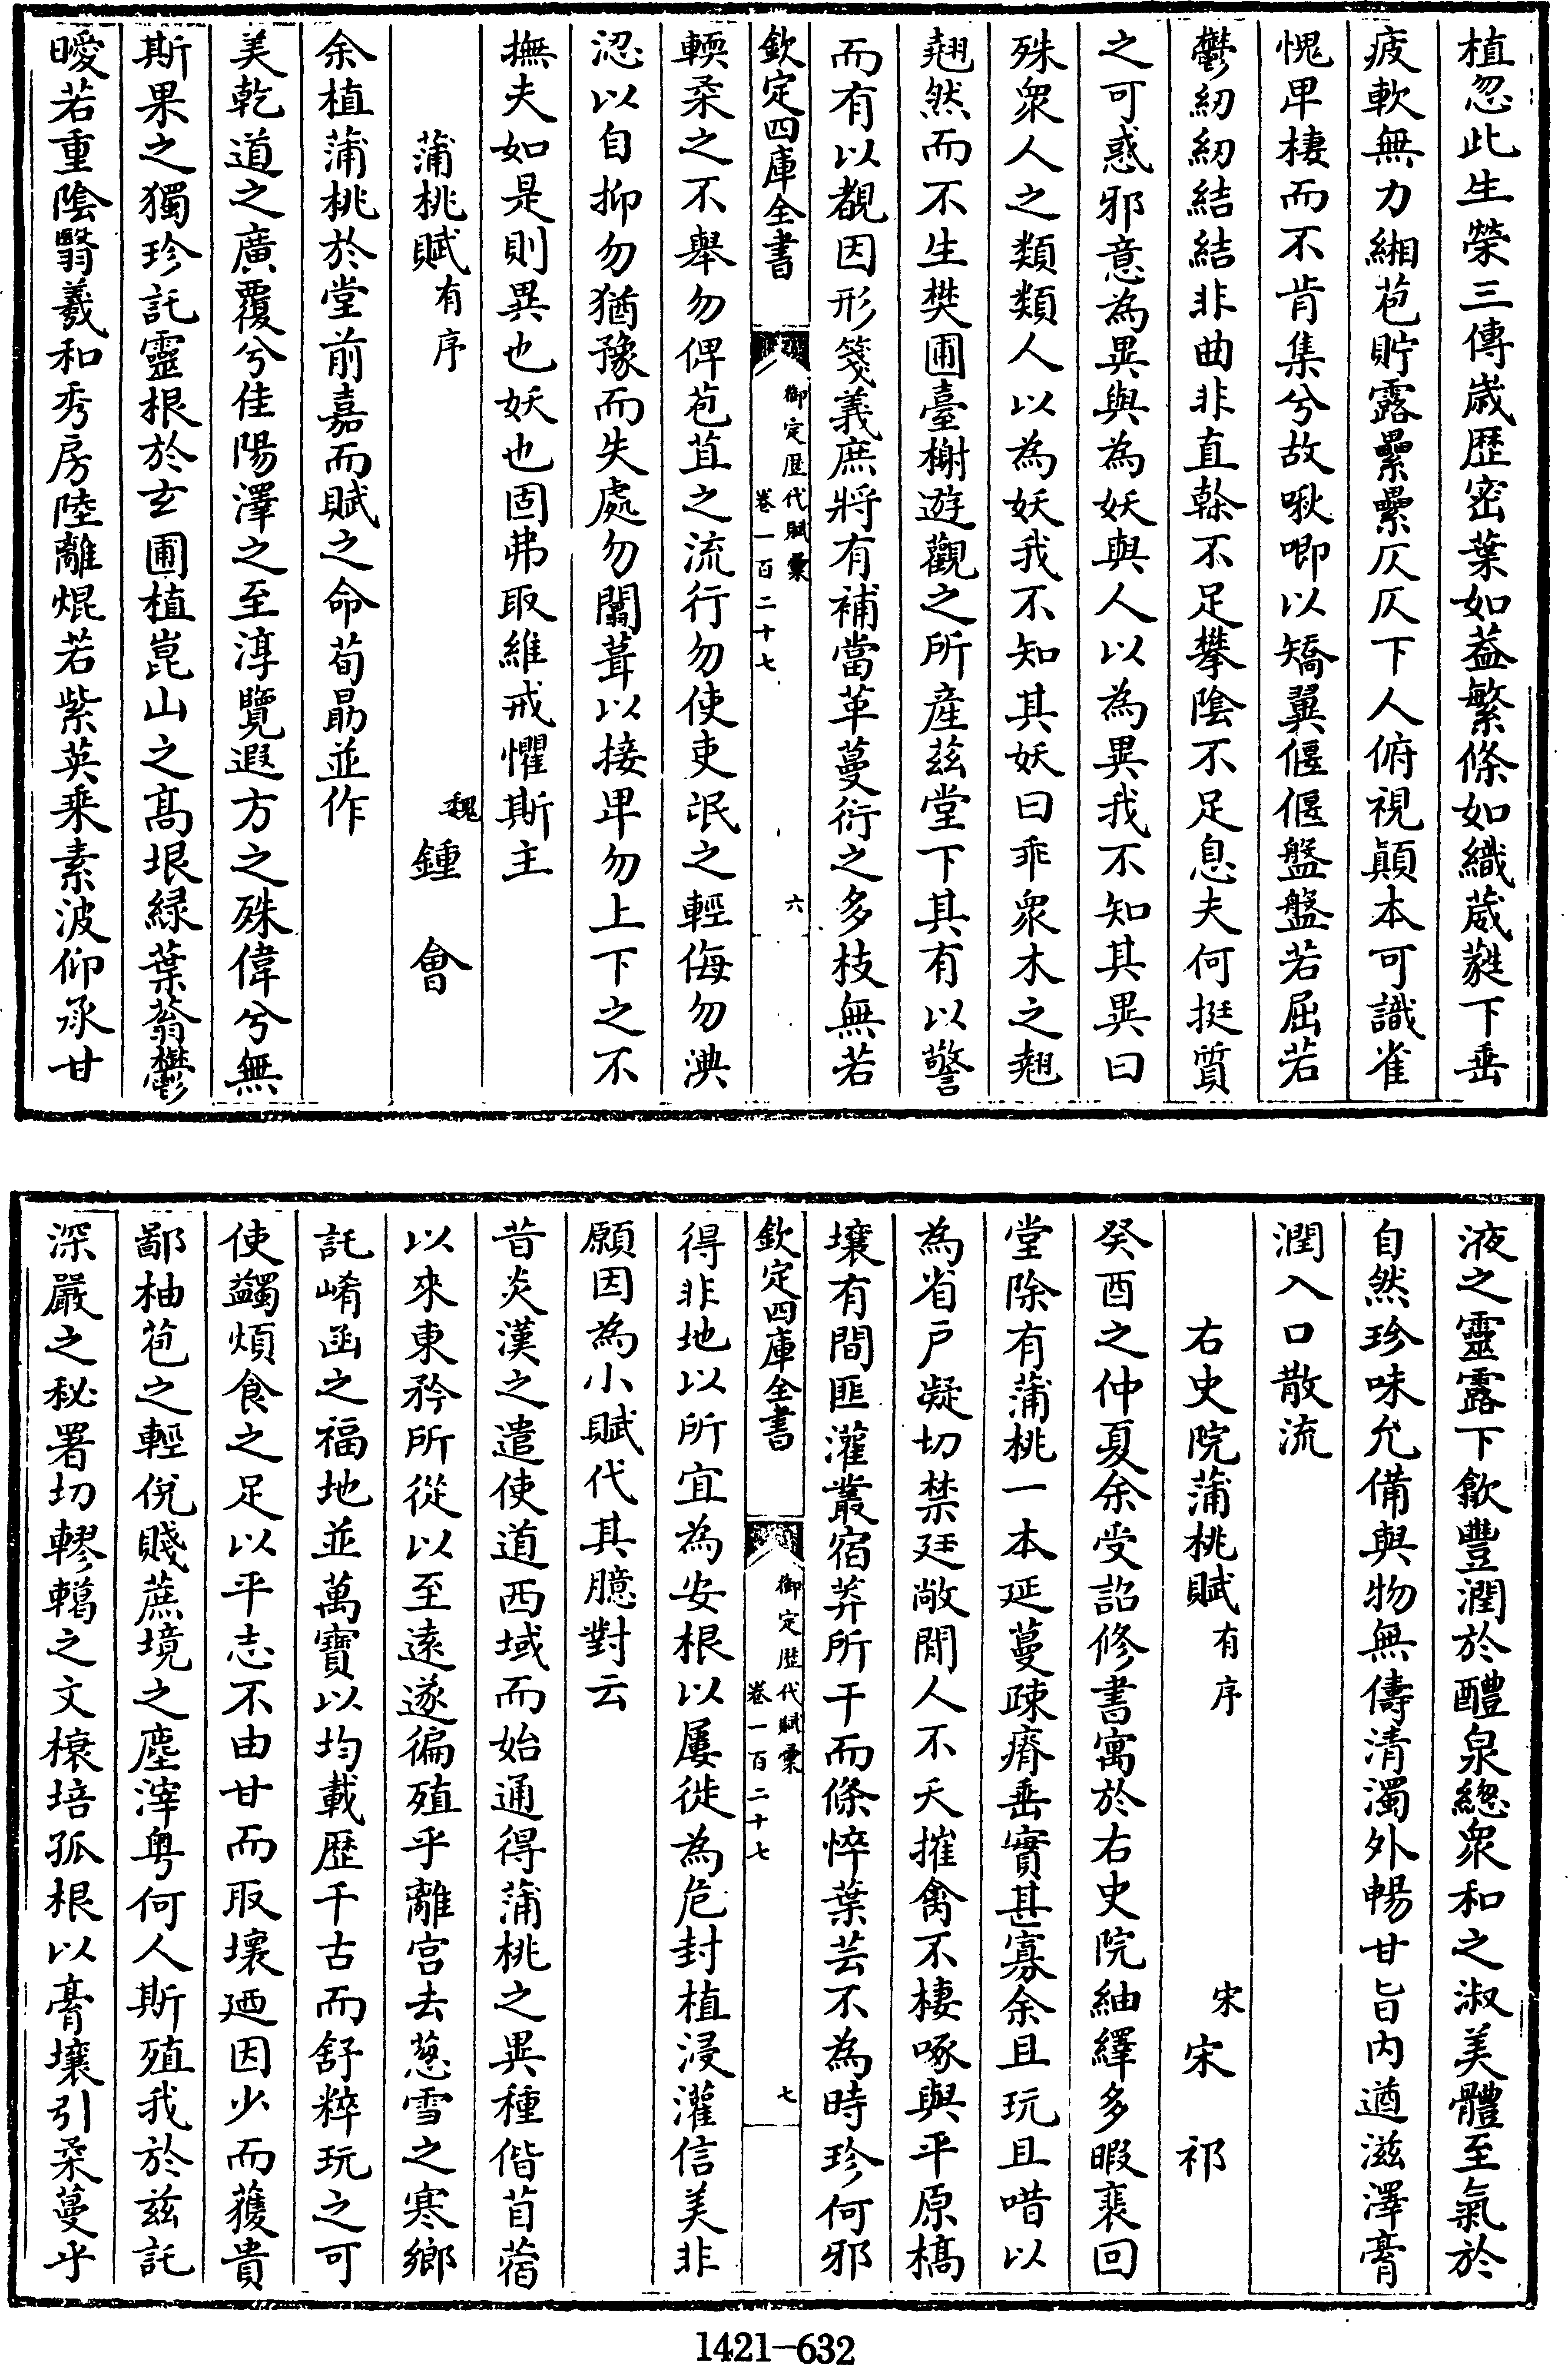 植忽此生榮三傳歲歴密葉如葢繁條如織葳蕤下垂
疲軟無力緗苞貯露纍纍仄仄下人俯視顛本可識雀
愧卑棲而不肯集兮故啾唧以矯翼偃偃盤盤若屈若
鬱紉紉結結非曲非直榦不足攀陰不足息夫何挺質
之可惑邪意為異與為妖與人以為異我不知其異曰
殊衆人之類類人以為妖我不知其妖曰乖衆木之翹
翹然而不生樊圃臺榭遊觀之所産兹堂下其有以警
而有以覩因形箋義庶將有補當革蔓衍之多枝無若
欽定四庫全書
御定歴代賦彙
卷一百二十七
六
輭桑之不舉勿俾苞苴之流行勿使吏氓之輕侮勿淟
涊以自抑勿猶豫而失處勿闒葺以接卑勿上下之不
撫夫如是則異也妖也固弗取維戒懼斯主
蒲桃賦有序
魏鍾會
余植蒲桃於堂前嘉而賦之命荀勗並作
美乾道之廣覆兮佳陽澤之至淳覽遐方之殊偉兮無
斯果之獨珍託靈根於玄圃植崑山之髙垠緑葉蓊鬱
曖若重陰翳羲和秀房陸離焜若紫英乘素波仰承甘
液之靈露下歙豐潤於醴泉總衆和之淑美體至氣於
自然珍味允備與物無儔清濁外暢甘旨内遒滋澤膏
潤入口散流
右史院蒲桃賦有序
宋宋祁
癸酉之仲夏余受詔修書寓於右史院紬繹多暇裵回
堂除有蒲桃一本延蔓疎瘠垂實甚寡余且玩且唶以
為省户凝切禁廷敞閒人不夭摧禽不棲啄與平原槁
壤有間匪灌叢宿莽所干而條悴葉芸不為時珍何邪
欽定四庫全書
御定歴代賦彙
卷一百二十七
七
得非地以所宜為安根以屢徙為危封植浸灌信美非
願因為小賦代其臆對云
昔炎漢之遣使道西域而始通得蒲桃之異種偕苜蓿
以來東矜所從以至遠遂徧殖乎離宫去葱雪之寒鄉
託崤函之福地並萬寶以均載歴千古而舒粹玩之可
使蠲煩食之足以平志不由甘而取壞廼因少而獲貴
鄙柚苞之輕侻賤蔗境之塵滓粤何人斯殖我於兹託
深嚴之秘署切轇轕之文榱培孤根以膏壤引柔蔓乎
1421-632